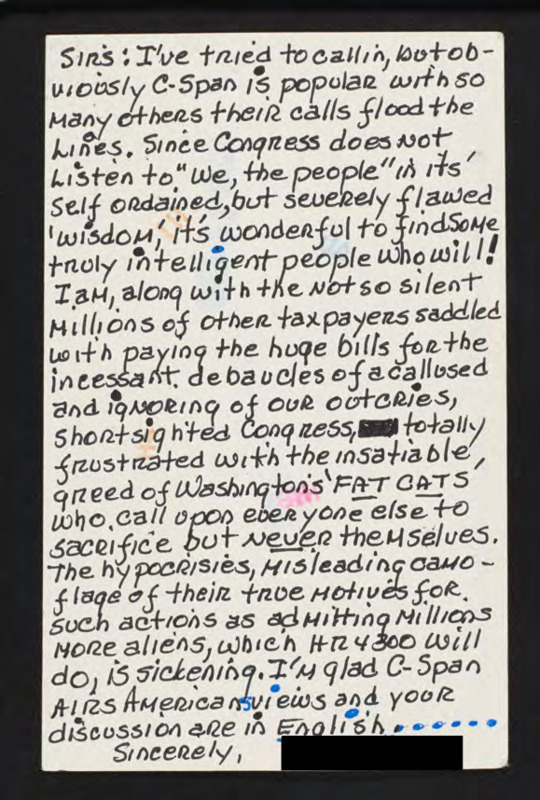 Sirs: I've tried to call in, but ob-
viously C-Span is popular with so
many others their calls flood the
lines. Since Congress does not
listen to "We, the people" in its'
self ordained, but severely flawed
'wisdom,' it's wonderful to find some
truly intelligent people who will!
I am, along with the not so silent
millions of other taxpayers saddled
with paying the huge bills for the
incessant debaucles of a callused
and ignoring of our outcries,
shortsighted Congress, totally
frustrated with the insatiable,
greed of Washington's 'FAT CATS'
who call upon everyone else to
sacrifice but never themselves.
The hypocrisies, misleading camo-
flage of their true motives for
such actions as admitting millions
more aliens, which HR 4300 will
do, is sickening. I'm glad C-Span
airs Americans views and your
discussion are in English........
Sincerely,